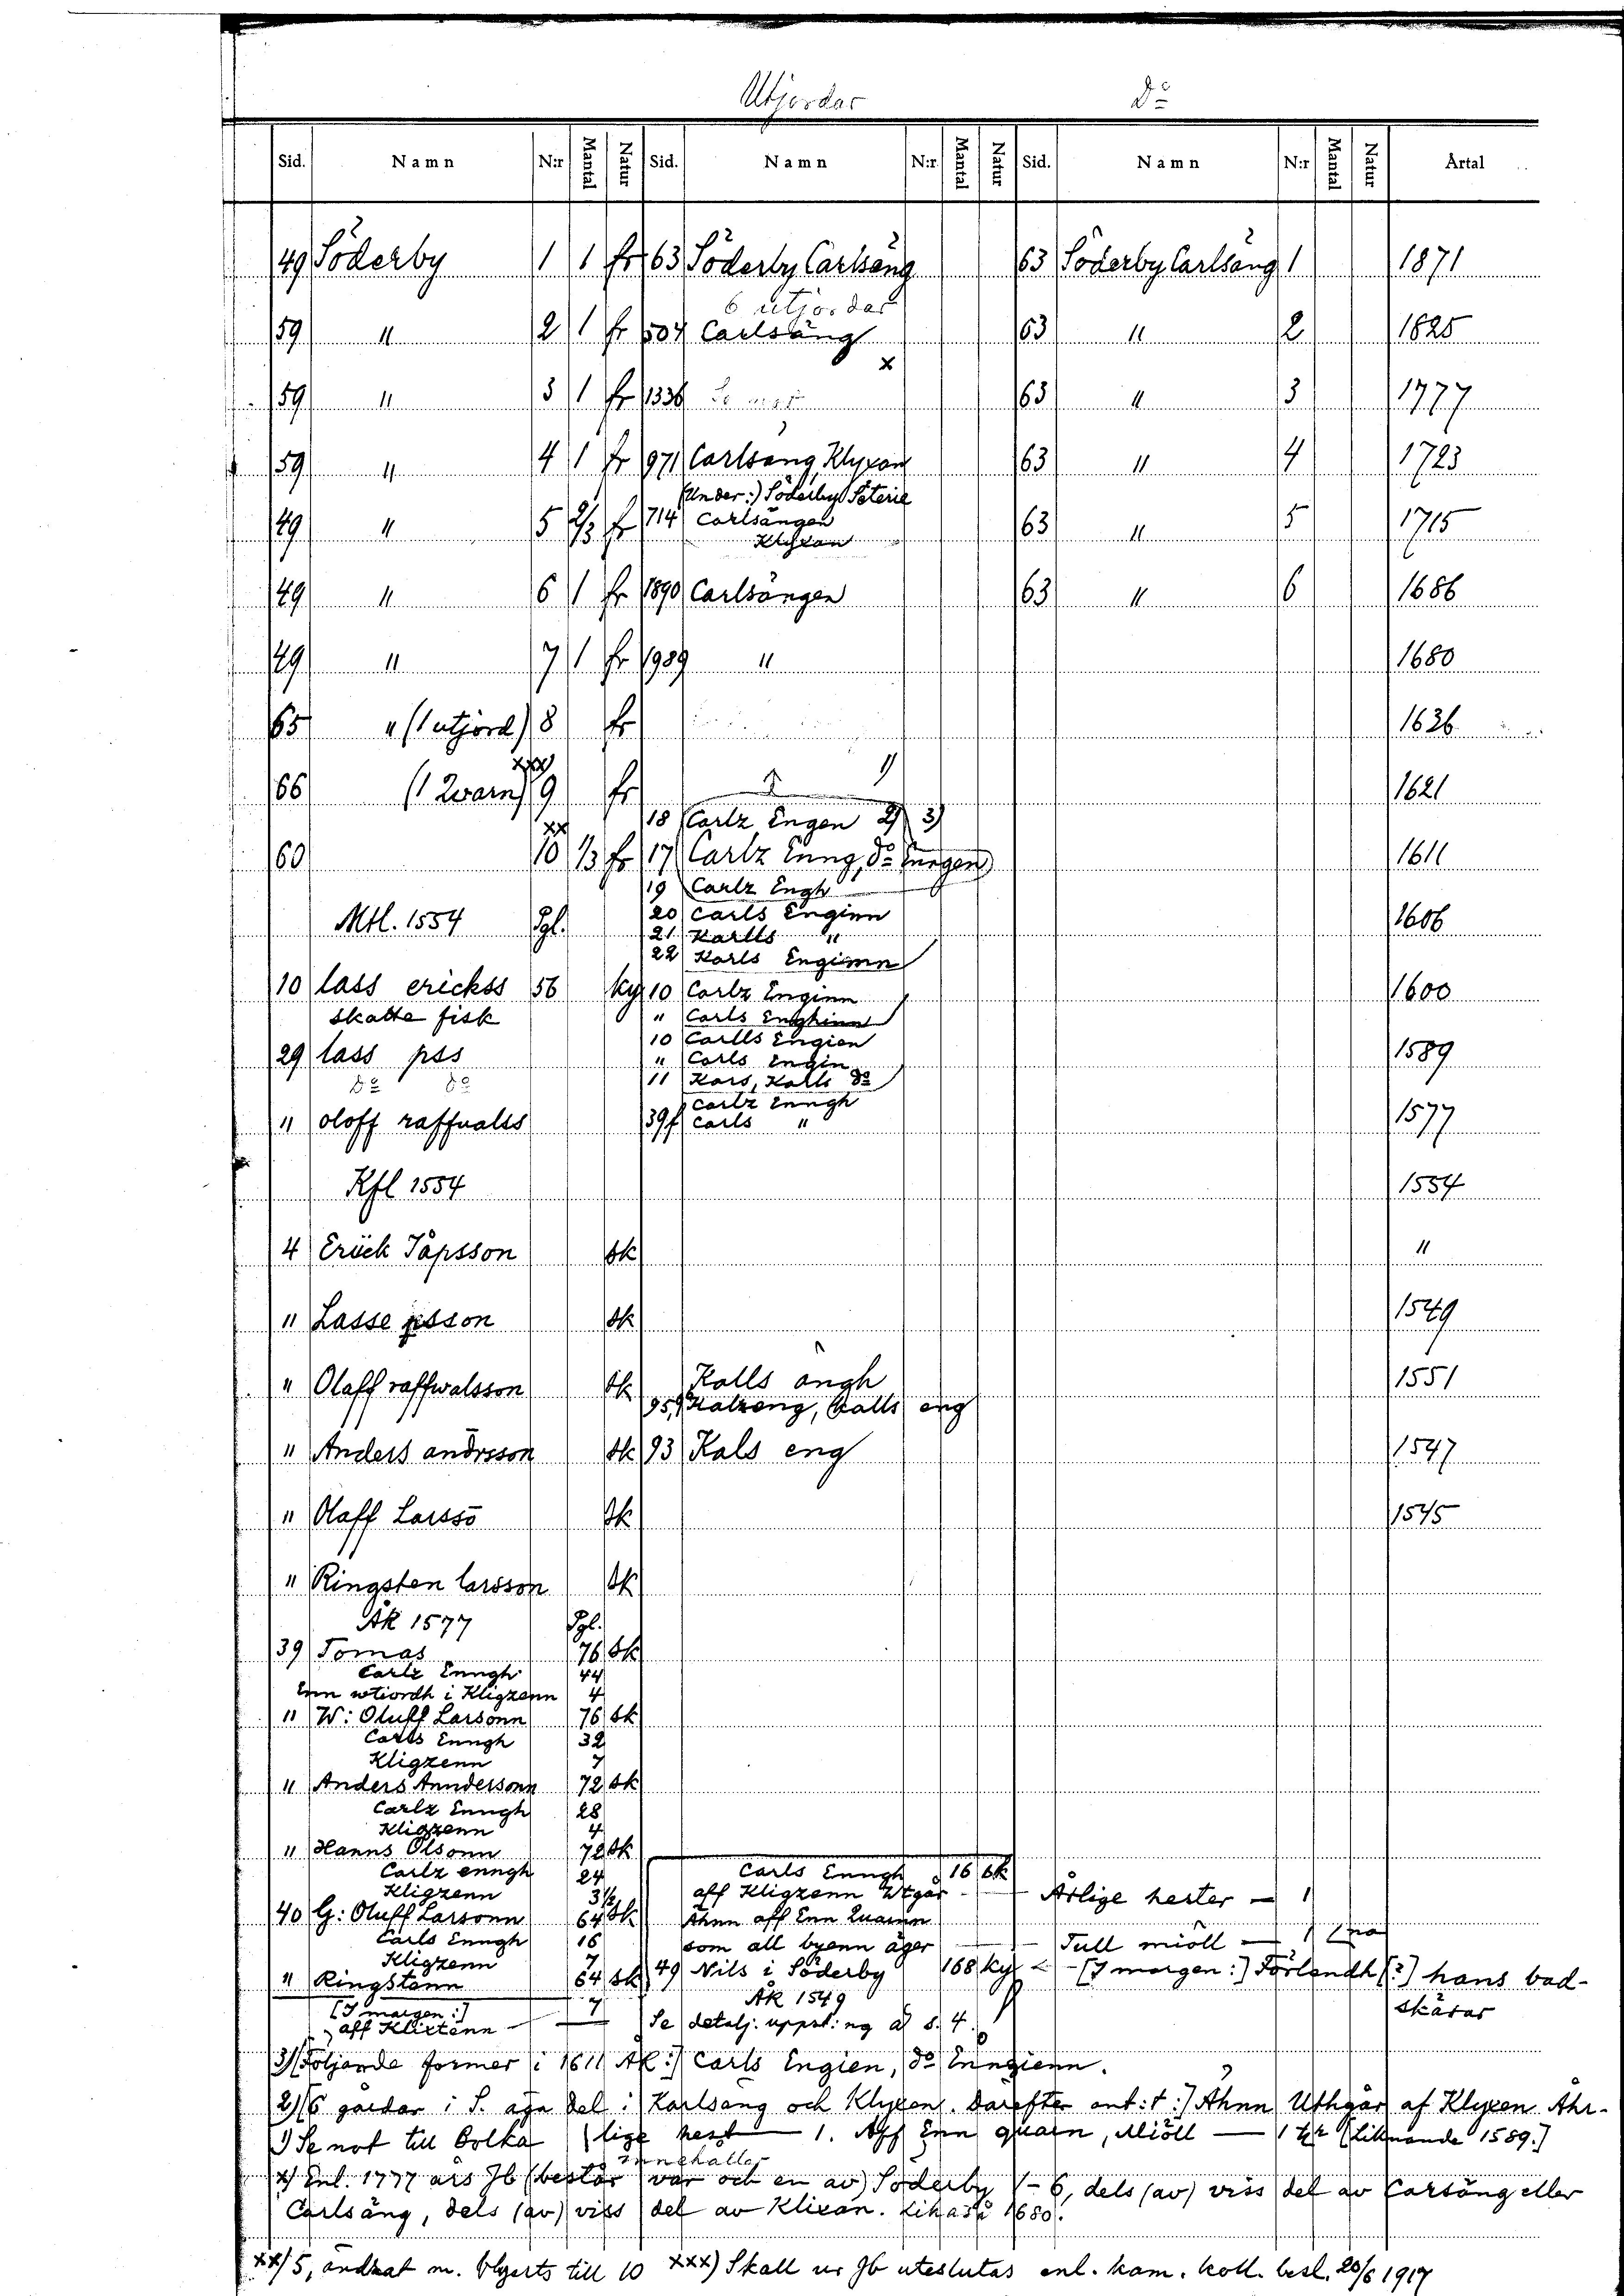 Utjordar Do
Sid. Namn N:r Mantal Natur Sid. Namn N:r Mantal Natur Sid. Namn N:r Mantal Natur Årtal
49 Söderby 1 1 fr 63 Söderby Carlsäng 63 Söderby Carlsäng 1 1871
6 utjordar
59 " 2 1 fr 504 Carlsäng 63 " 2 1825
x
59 " 3 1 fr 1336 63 " 3 1777
59 " 4 1 fr 971 Carlsäng, Klyxan 63 " 4 1723
(Under:) Söderby Säterie
49 " 5 2/3 fr 714 Carlsängen 63 " 5 1715
Klyxan
49 " 6 1 fr 1890 Carlsängen 63 " 6 1686
49 " 7 1 fr 1989 " 1680
65 " (1 utjord) 8 fr 1636
xxx)
66 (1 Qvarn) 9 fr 1) 1621
18 Carlz Engen 2) 3)
xx
60 10 1/3 fr 17 Carlz Enng, do Enngen 1611
19 Carlz Engh
Mtl. 1554 Pgl. 20 Carls Enginn 1606
21 Karlls "
22 Karls Enginn
10 lass erickss 56 ky 10 Carlz Enginn 1600
skatte fisk " Carls Enghinn
10 Carlls Engien
29 lass pss " Carls Engin 1589
do do 11 Kars, Karls do
Carlz Enngh
" oloff raffualss 39f Carls " 1577
Kfl 1554 1554
4 Erück Jåpsson sk "
" Lasse psson sk 1549
" Olaff raffwalsson sk Kalls ängh 1551
95,9 Kalzeng, Kalls eng
" Anders andrsson sk 93 Kals eng 1547
" Olaff Larssö sk 1545
" Ringsten larsson sk
ÄK 1577 Pgl.
39 Tomas 76 sk
Carlz Enngh 44
Enn wtiordh i Kligzenn 4
" W: Oluff Larsonn 76 sk
Carls Enngh 32
Kligzenn 7
" Anders Anndersonn 72 sk
Carlz Enngh 28
Kligzenn 4
" Hanns Olsonn 72 sk
Carlz enngh 24 Carls Enngh 16 sk
Kligzenn 3 1/2 aff Kligzenn Wtgår - Årlige hester — 1
40 G: Oluff Larsonn 64 sk Ähnn aff Enn Quarnn
Carls Enngh 16 som all byenn äger Tull miöll — 1
Kligzenn 7
" Ringstenn 64 sk 49 Nils i Söderby 168 ky - [I margen:] Förlendh [?] hans bad-
ÄK 1549 skärar
[I margen:] 7
aff Klixtenn Se detalj. uppst:ng å s. 4.
3) [Följande former i 1611 ÄK:] Carls Engien, do Enngienn.
2) [6 gårdar i S. äga del i Karlsäng och Klyxen. Därefter ant:t:] Ähnn Uthgår af Klyxen Åhr-
lige hest — 1. Aff Enn quarn, Miöll — 1 [Liknande 1589.]
1) Se not till Bolka
innehåller
x) Enl. 1777 års Jb (består var och en av) Söderby 1-6, dels (av) viss del av Carsäng eller
Carlsäng, dels (av) viss del av Klixan. Likaså 1680.
xx) 5, ändrat m. blyerts till 10 xxx) Skall ur Jb uteslutas enl. kam. koll. besl. 20/6 1917